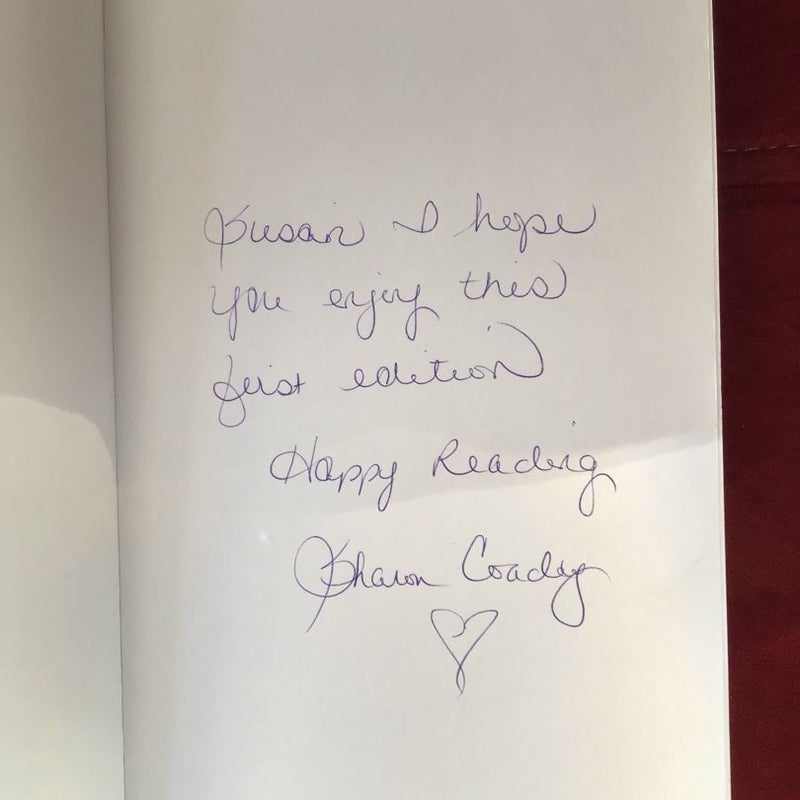 Susan I hope
you enjoy this
first edition
Happy Reading
Sharon Coady